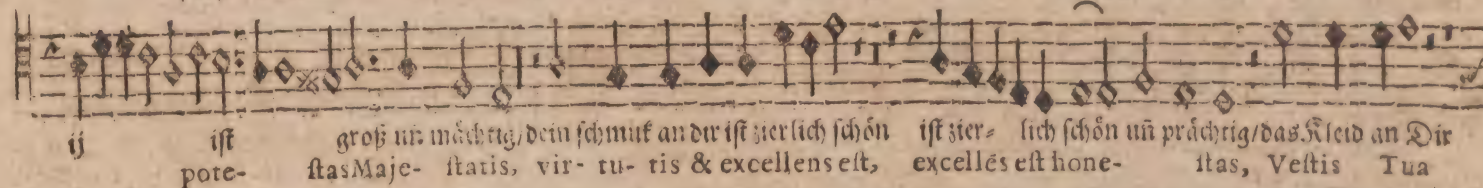 ij ist groß uñ mächtig/dein schmuk an dir ist zierlich schön ist zier- lich schön uñ prächtig/das Kleid an Dir
pote- stasMaje- statis, vir- tu- tis & excellens est, excellēs est hone- stas, Vestis Tua